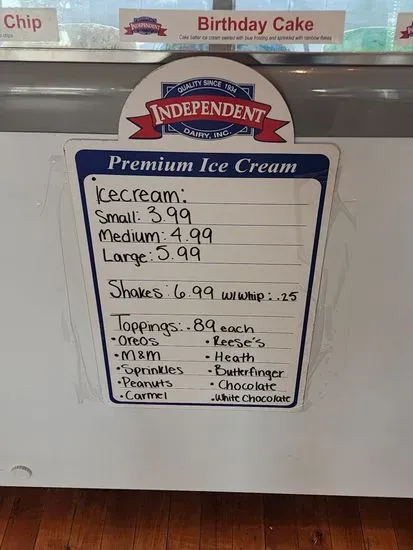 Chip
Birthday Cake
Cake batter ice cream swirled with blue frosting and sprinkled with rainbow flakes
QUALITY SINCE 1934
INDEPENDENT
DAIRY, INC.
Premium Ice Cream
Icecream:
Small: 3.99
Medium: 4.99
Large: 5.99
Shakes: 6.99 w/ whip: .25
Toppings: .89 each
• Oreos • Reese's
• M&M • Heath
• Sprinkles • Butterfinger
• Peanuts • Chocolate
• Carmel • White Chocolate